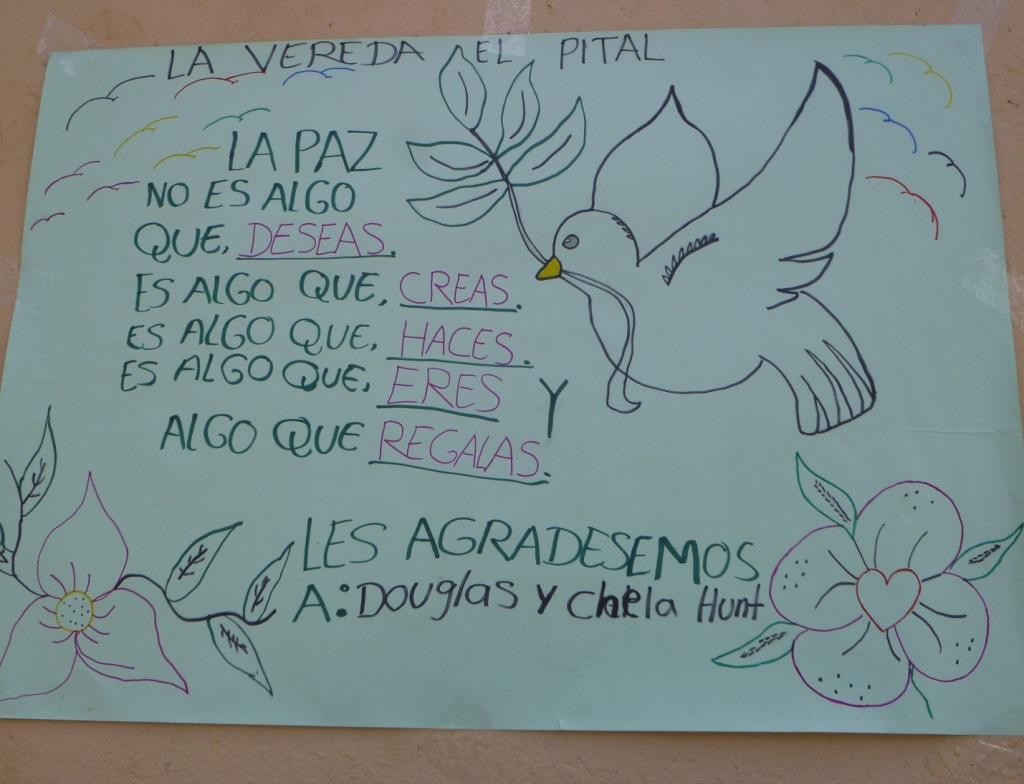 LA VEREDA EL PITAL
LA PAZ
NO ES ALGO
QUE, DESEAS.
ES ALGO QUE, CREAS.
ES ALGO QUE, HACES.
ES ALGO QUE, ERES Y
ALGO QUE REGALAS.
LES AGRADESEMOS
A: Douglas y Hunt